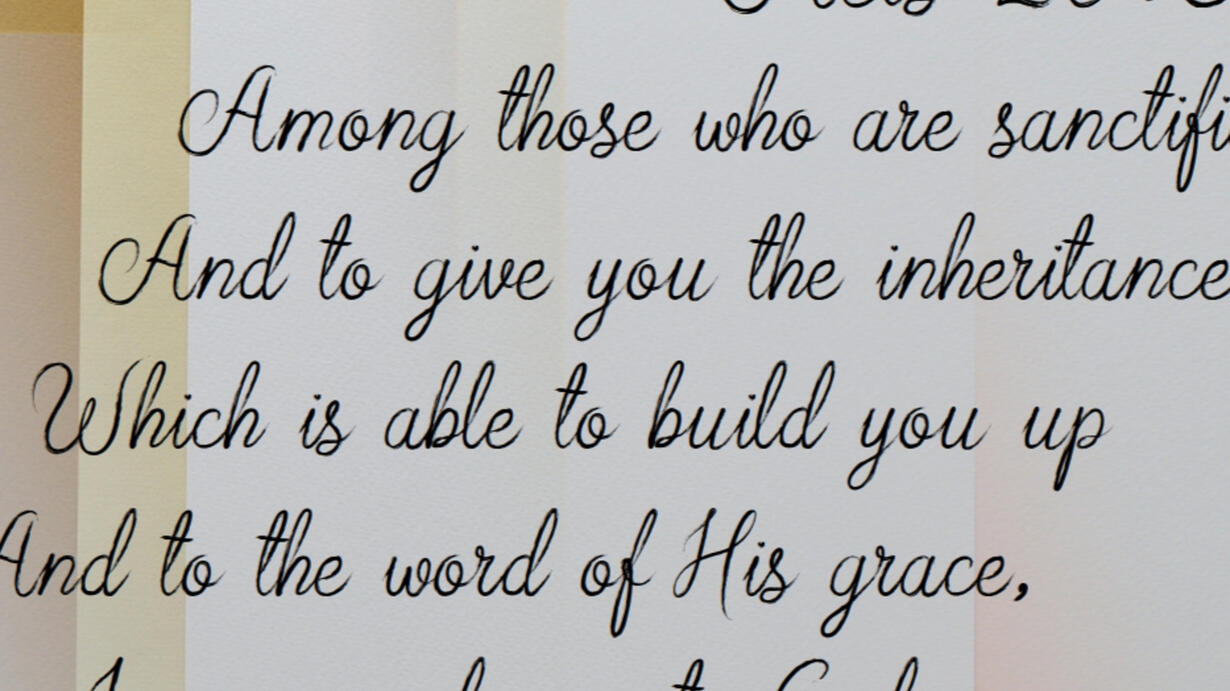 Among those who are
And to give you the inheritance
Which is able to build you up
And to the word of His grace,